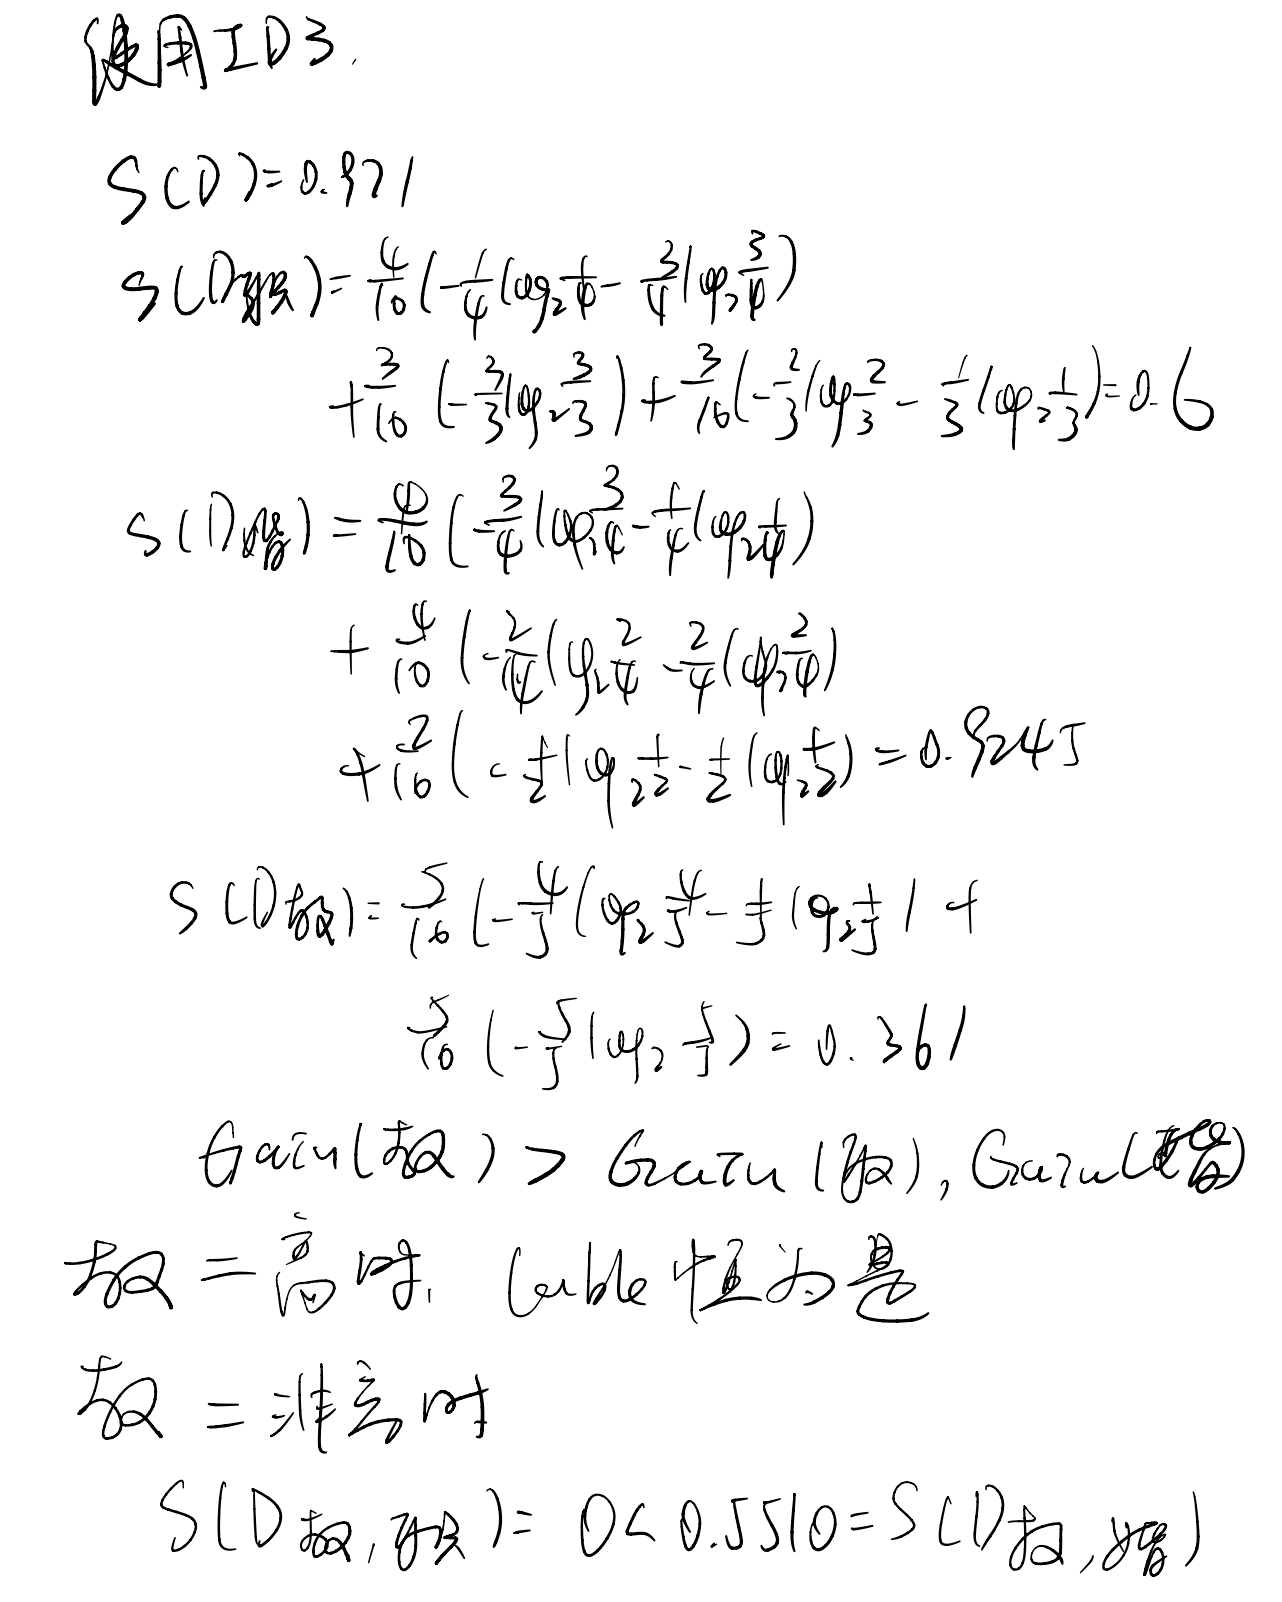 使用ID3.
S(D)=0.971
S(D职)=4/10(-1/4log₂1/4-3/4log₂3/4)
+3/10(-3/3log₂3/3)+3/10(-2/3log2/3-1/3log₂1/3)=0.6
S(D婚)=4/10(-3/4log₂3/4-1/4log₂1/4)
+4/10(-2/4log₂2/4-2/4log₂2/4)
+2/10(-1/2log₂1/2-1/2log₂1/2)=0.9245
S(D教)=5/10(-4/5log₂4/5-1/5log₂1/5)+
5/10(-5/5log₂5/5)=0.361
Gain(教)>Gain(职),Gain(婚)
教=高时, lable恒为是
教=非高时
S(D教,职)=0<0.5510=S(D教,婚)